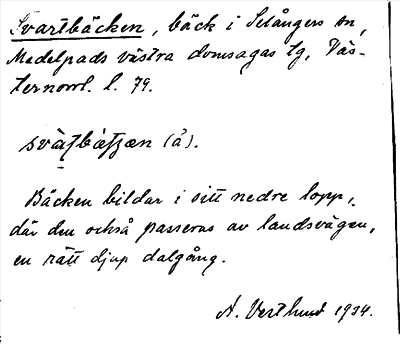 Svartbäcken, bäck i Selångers sn,
Medelpads västra domsagas tg, Väs-
ternorrl. l. 79.
(å).
Bäcken bildar i sitt nedre lopp,
där den också passeras av landsvägen,
en rätt djup dalgång.
A. Vestlund 1934.